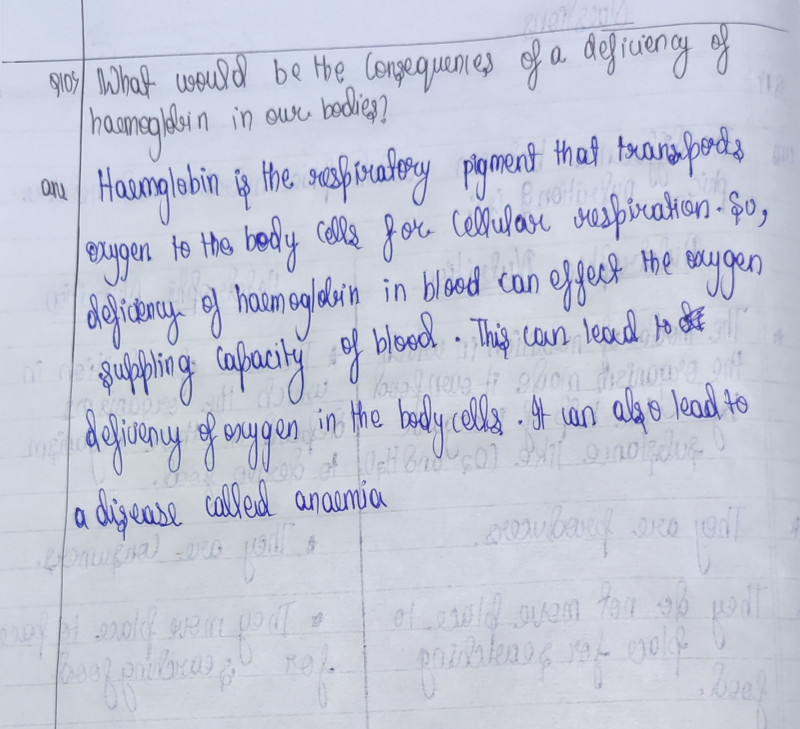 Q10) What would be the consequences of a deficiency of
haemoglobin in our bodies?
ans Haemglobin is the respiratory pigment that transpods
oxygen to the body cells for cellular respiration. So,
deficiency of haemoglobin in blood can effect the oxygen
suppling capacity of blood. This can lead to
deficency of oxygen in the body cells. It can also lead to
a disease called anaemia